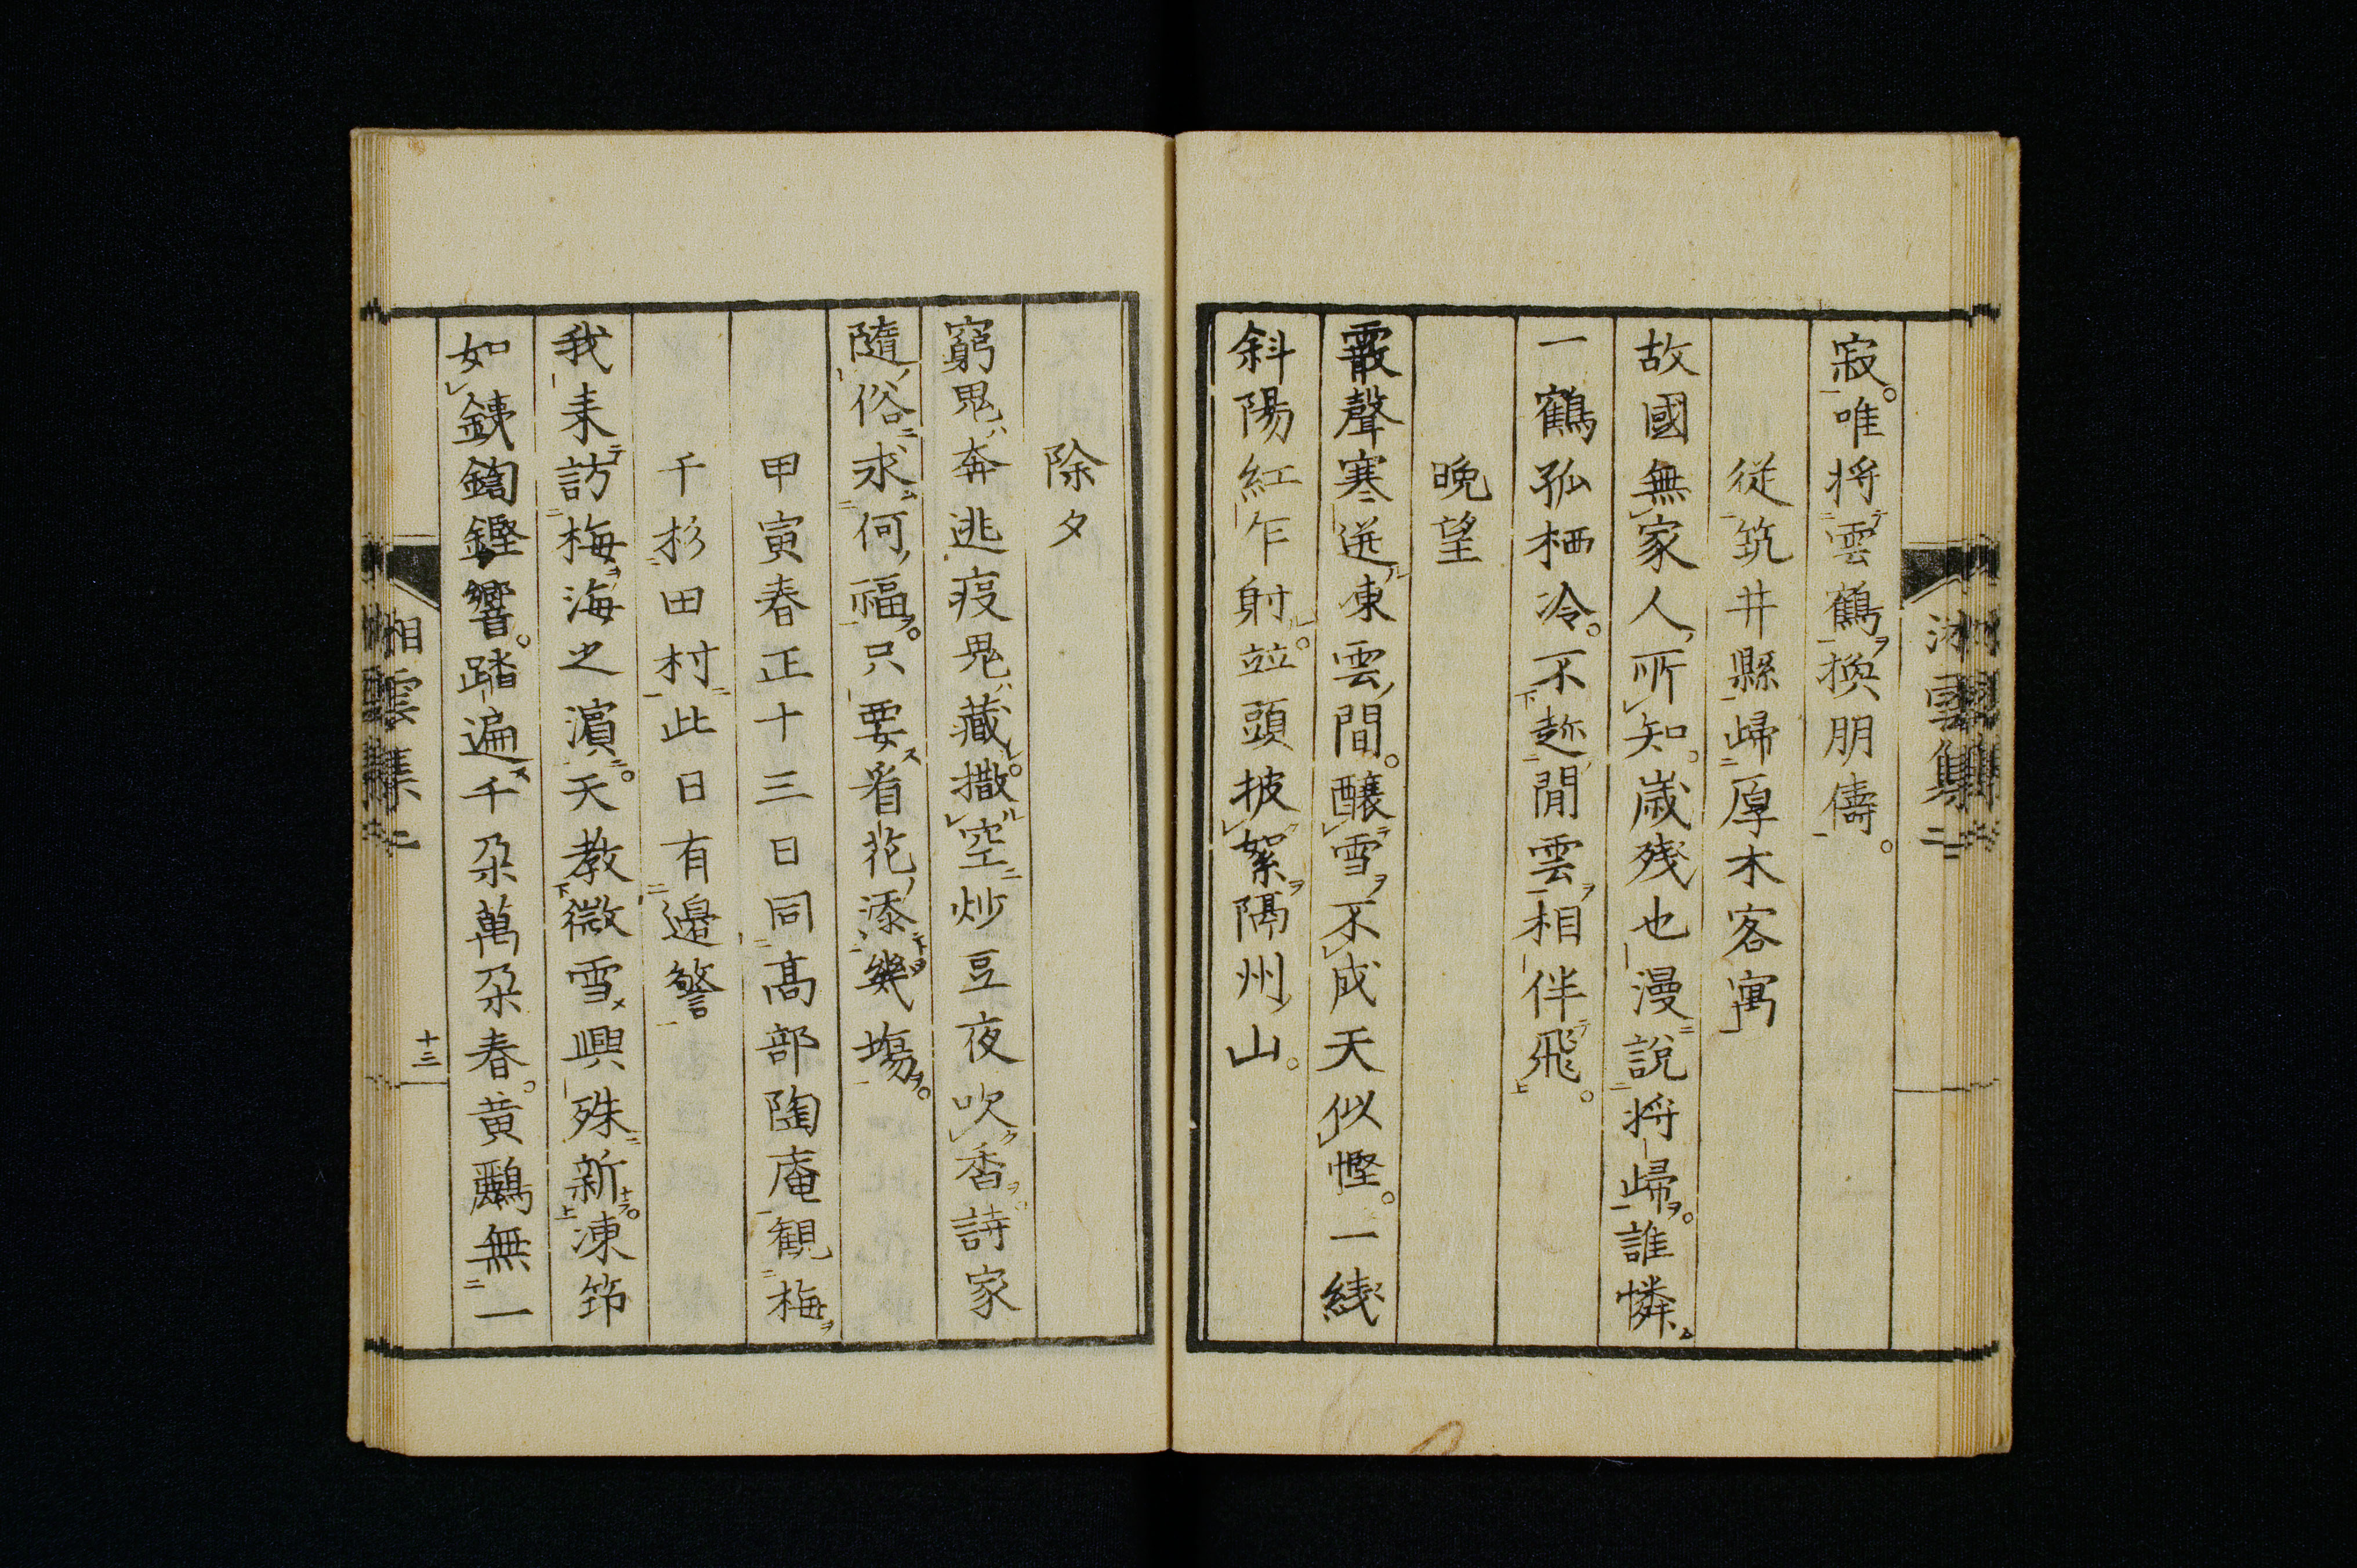 寂。唯將雲鶴換朋儔。
從筑井縣歸厚木客寓
故國無家人所知。歳殘也漫說將歸。誰憐
一鶴孤栖冷。不趂閒雲相伴飛。
晩望
霰聲寒迸凍雲間。釀雪不成天似慳。一綫
斜陽紅乍射。竝頭披絮隔州山。
湘雲集二
除夕
窮鬼奔逃疫鬼藏。撒空炒豆夜吹香。詩家
隨俗求何福。只要看花添幾塲。
甲寅春正十三日同髙部陶庵觀梅
千杉田村此日有邊警
我来訪梅海之濵。天教微雪興殊新。凍筇
如銕鍧鏗響。踏遍千朶萬朶春。黄鸝無一
湘雲集二
十三